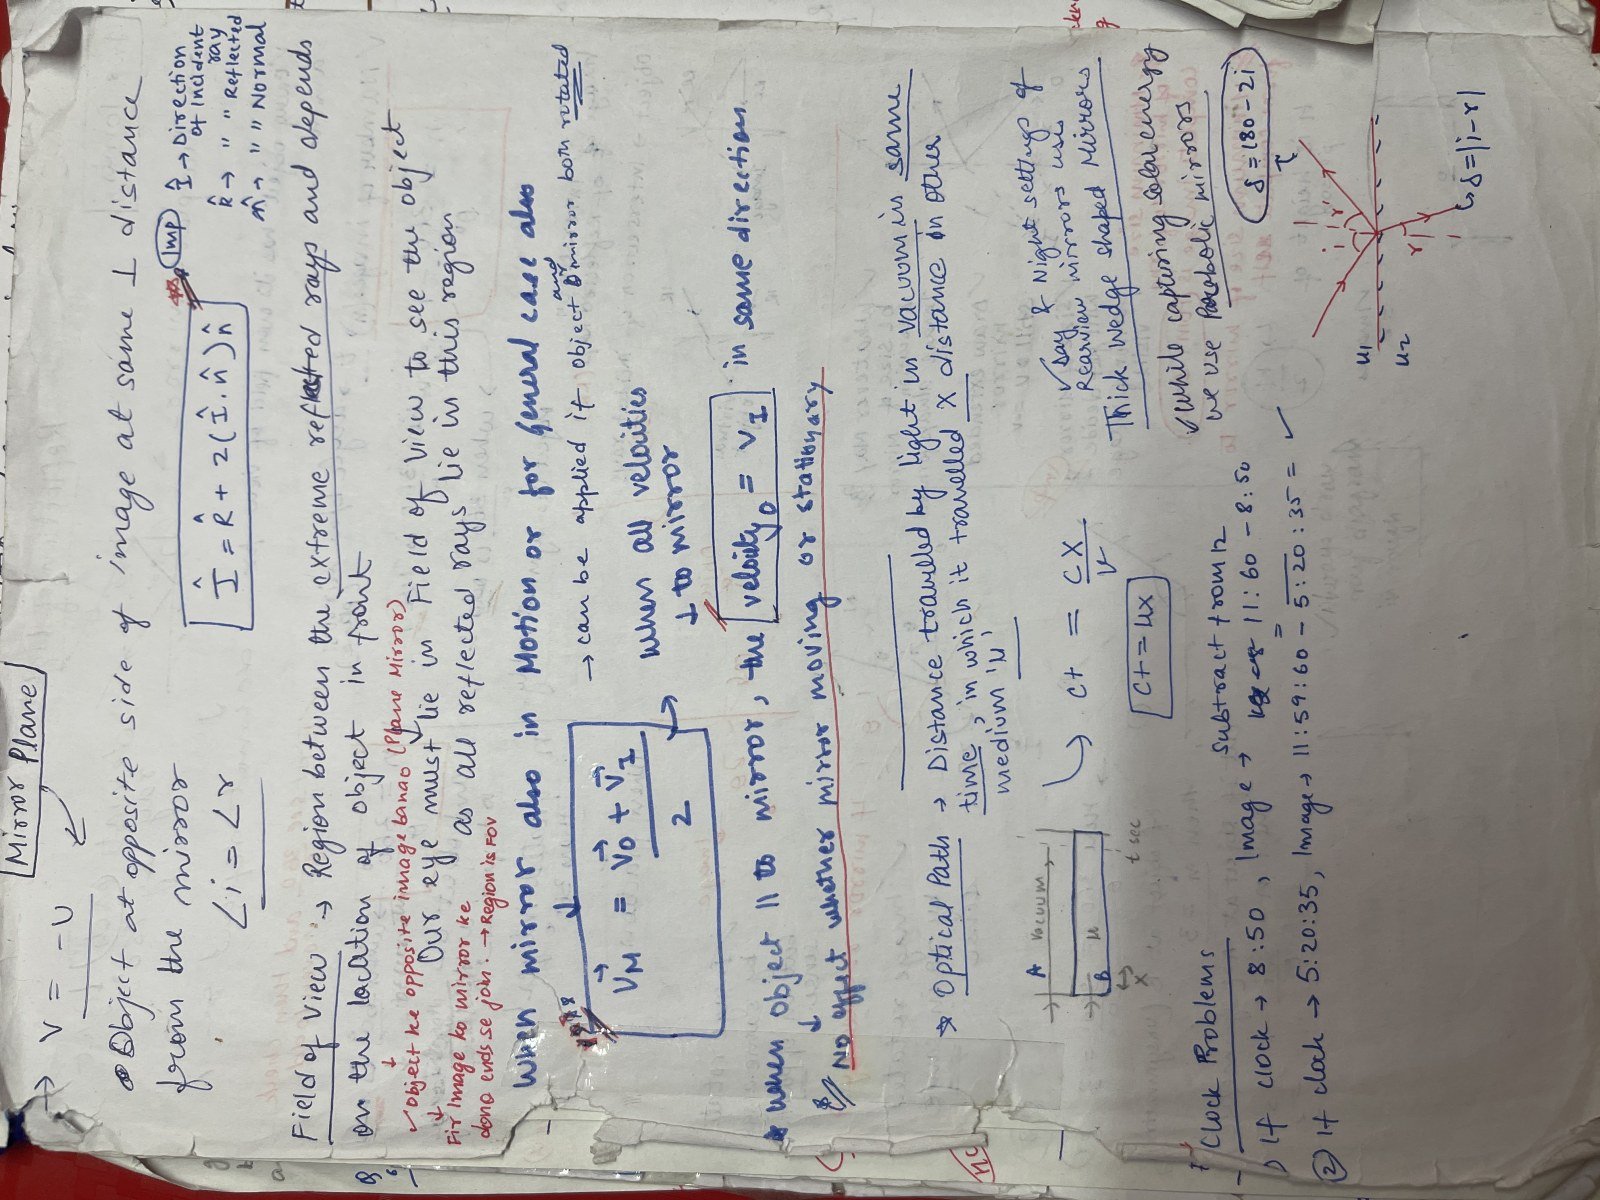 Mirror Plane
→ V = -U
• Object at opposite side of image at same ⊥ distance
from the mirror
∠i = ∠r
Î = R̂ + 2(Î.n̂)n̂
Imp
Î → Direction of Incident ray
R̂ → " " Reflected
n̂ → " " Normal
Field of View → Region between the extreme reflected rays and depends
on the location of object in front
✓ Object ke opposite image banao (Plane Mirror)
Our eye must lie in Field of View to see the object
↓ Fir Image ko mirror ke
as all reflected rays lie in this region
dono ends se join. → Region is FOV
When mirror also in Motion or for general case also
→ can be applied if object and mirror both rotated
V⃗M = V⃗O + V⃗I / 2
when all velocities
⊥ to mirror
* When object || to mirror, the velocity O = VI in same direction
↓ No effect whether mirror moving or stationary
* Optical Path → Distance travelled by light in vacuum in same
time, in which it travelled x distance in other
medium 'μ'
A Vacuum
B μ
x
t sec
ct = cx/v
ct = μx
✓ Day & Night settings of
Rearview mirrors use
Thick Wedge shaped Mirrors
✓ While capturing solar energy
we use Parabolic mirrors
Clock Problems Subtract from 12
1) If clock → 8:50, Image → 11:60 - 8:50
=
② If clock → 5:20:35, Image → 11:59:60 - 5:20:35 = ✓
δ = 180 - 2i
i r'
μ1
μ2
r
δ = |i - r|